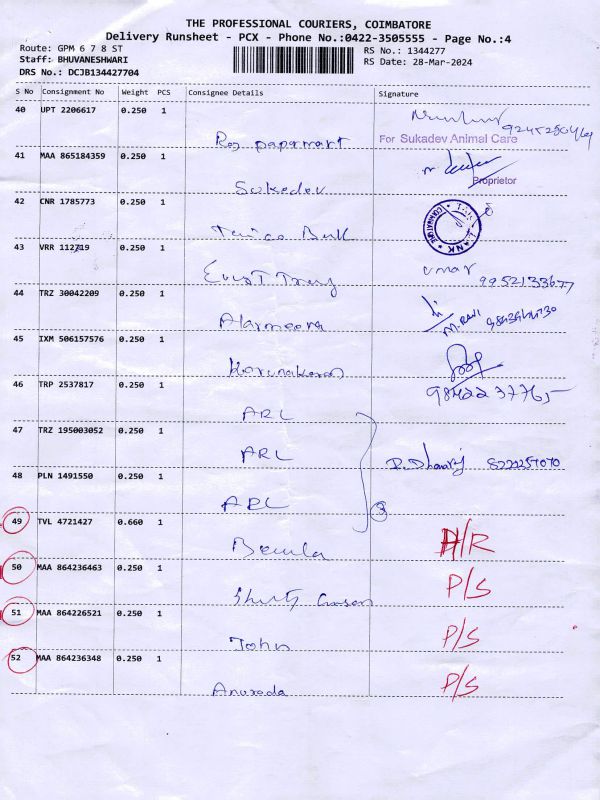 THE PROFESSIONAL COURIERS, COIMBATORE
Delivery Runsheet - PCX - Phone No.:0422-3505555 - Page No.:4
Route: GPM 6 7 8 ST
Staff: BHUVANESHWARI
DRS No.: DCJB134427704
RS No.: 1344277
RS Date: 28-Mar-2024
S No Consignment No Weight PCS Consignee Details Signature
40 UPT 2206617 0.250 1
For Sukadev Animal Care
41 MAA 865184359 0.250 1
Proprietor
Sukedev
42 CNR 1785773 0.250 1
43 VRR 112719 0.250 1
umar
9952133677
44 TRZ 30042209 0.250 1
M. Ravi
45 IXM 506157576 0.250 1
Karunakaran
46 TRP 2537817 0.250 1
9842237765
ARL
47 TRZ 195003052 0.250 1
ARL
48 PLN 1491550 0.250 1
ARL
3
49 TVL 4721427 0.660 1
H/R
50 MAA 864236463 0.250 1
P/S
51 MAA 864226521 0.250 1
P/S
John
52 MAA 864236348 0.250 1
P/S
Anuxada